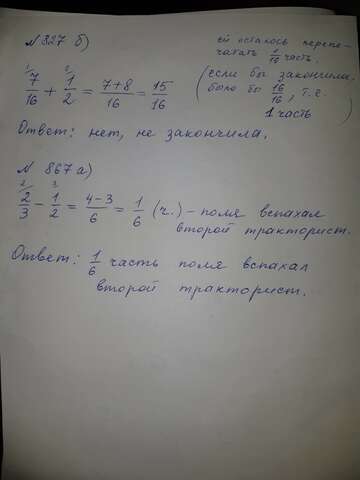 N 827 б)
ей осталось перепе-
чатать 1/16 часть.
7/16 + 1/2 = 7+8/16 = 15/16
(если бы закончила,
было бы 16/16, т.е.
1 часть
Ответ: нет, не закончила.
N 867 а)
2/3 - 1/2 = 4-3/6 = 1/6 (ч.) - поля вспахал
второй тракторист.
Ответ: 1/6 часть поля вспахал
второй тракторист.